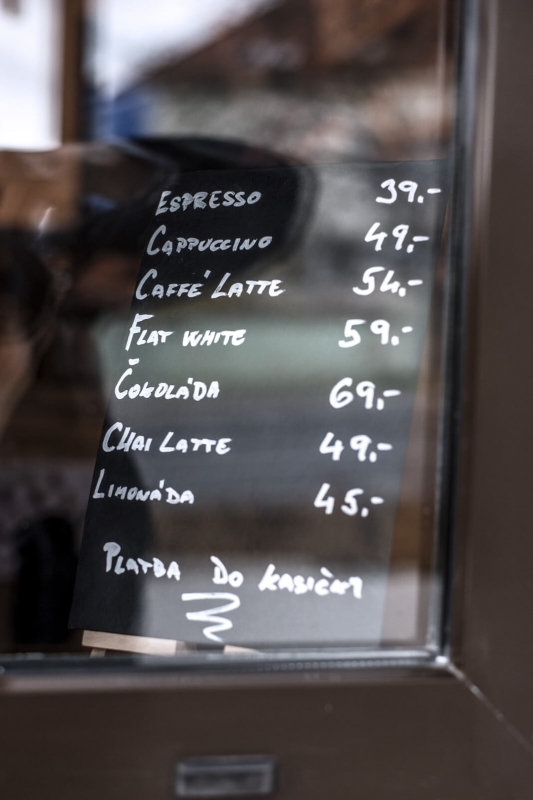 ESPRESSO 39.-
CAPPUCCINO 49,-
CAFFÉ LATTE 54,-
FLAT WHITE 59.-
ČOKOLÁDA 69,-
CHAI LATTE 49,-
LIMONÁDA 45,-
PLATBA DO KASIČKY